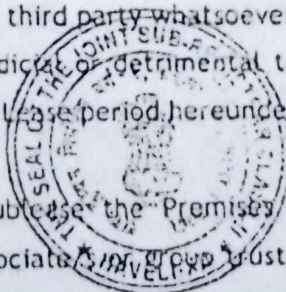 third party whatsoever
dicial or detrimental t
Lease period hereunde
sublease the Premises
ociate/s or group trust
THE SEAL OF THE JOINT SUB
HAVELI